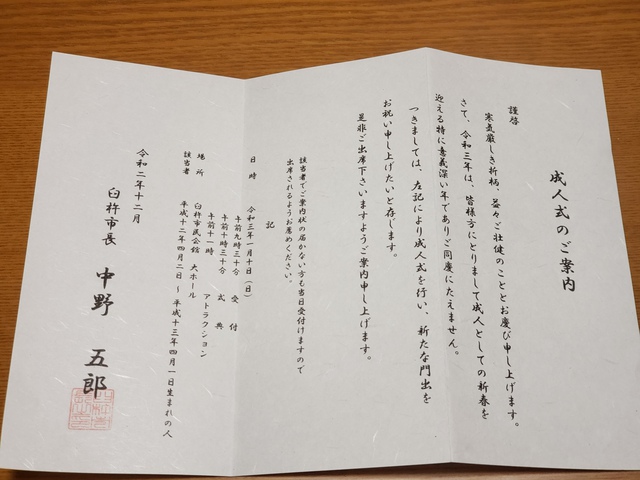 成人式のご案内
謹啓
寒気厳しき折柄、益々ご壮健のこととお慶び申し上げます。
さて、令和三年は、皆様方にとりまして成人としての新春を
迎える特に意義深い年でありご同慶にたえません。
つきましては、左記により成人式を行い、新たな門出を
お祝い申し上げたいと存じます。
是非ご出席下さいますようご案内申し上げます。
該当者でご案内状の届かない方も当日受付けますので
出席されるようお薦めください。
記
日 時 令和三年一月十日(日)
午前九時三十分 受 付
午前十時三十分 式 典
午前十一時 アトラクション
場 所 臼杵市民会館 大ホール
該当者 平成十二年四月二日 ~ 平成十三年四月一日生まれの人
令和二年十二月
臼杵市長 中野 五郎